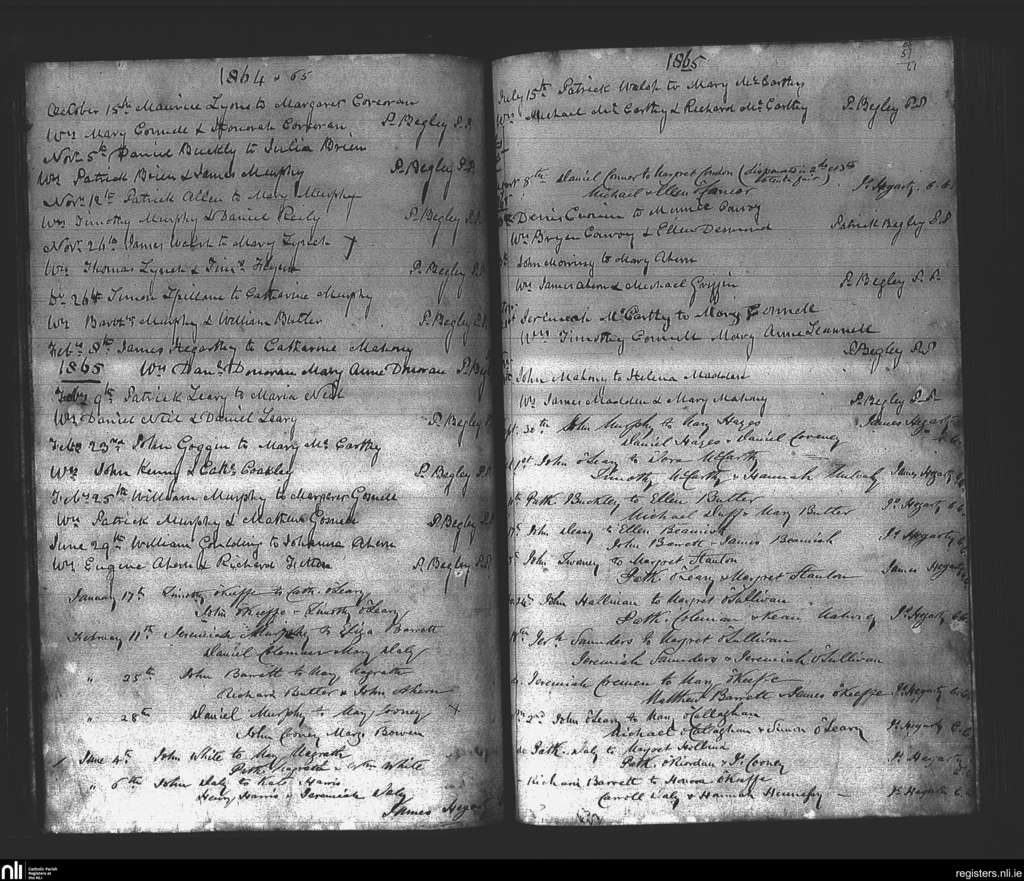 1864 & 65
October 15th Maurice Lyons to Margaret Corcoran
Wss Mary Connell & Honorah Corcoran P. Begley P.P.
Novr. 5th Daniel Buckly to Julia Brien
Wss Patrick Brien & James Murphy P. Begley P.P.
Novr. 12th Patrick Allen to Mary Murphy
Wss Timothy Murphy & Daniel Reily P. Begley P.P.
Novr. 24th James Walsh to Mary Lynch
Wss Thomas Lynch & P. Begley P.P.
Do. 26th Simon Spillane to Catharine Murphy
Wss Murphy & William Butler P. Begley P.P.
Feby. 8th James Hegarthy to Catharine Mahony
1865 Wss Danl. Donovan Mary Anne Donovan P. Beg
Feby. 9th Patrick Leary to Maria Neil
Wss Daniel Neil & Daniel Leary P. Begley
Feby. 23rd John Goggin to Mary McCarthy
Wss John Kenny & Cathe. Coakley P. Begley P.P.
Feby. 25th William Murphy to
Wss Patrick Murphy & P. Begley
June 29th William Goulding to Johanna Ahern
Wss Eugene Ahern & Richard P. Begley P.P.
January 17th Timothy O'Keeffe to Cath. O'Leary
John O'Keeffe - Timothy O'Leary
February 11th Jeremiah Murphy to Eliza Barrett
Daniel Mary Daly
" 25th John Barrett to Mary Magrath
Richard Butler & John Ahern
" 28th Daniel Murphy to Mary Cooney
John Cooney Marge Bowen
June 4th John White to May Magrath
Patk. Magrath & White
" 6th John Daly to Kate Harris
Henry Harris & Jeremiah Daly
James Hegar
1865
July 15th Patrick Walsh to Mary McCarthy
Wss Michael McCarthy & Richard McCarthy P. Begley P.P.
8th Daniel Connor to Margret Condon (dispensed in
Michael & Ellen Connor Js. Hegarty C.C.
Denis to Convoy
Wss Bryan Convoy & Ellen Desmond Patrick Begley P.P.
John to Mary Ahern
Wss James Ahern & Michael Griffin P. Begley P.P.
Jeremiah McCarthy to Mary Connell
Wss Timothy Connell Mary Anne Jeannell
P. Begley P.P.
John Mahony to Helena Madden
Wss James Madden & Mary Mahony P. Begley P.P.
30th John Murphy to Mary Hayes James Hegarty
Daniel Hayes & Daniel Coveney
John O'Leary to McCarthy
Timothy McCarthy & Hannah James Hegarty
Patk. Buckley to Ellen Butler
Michael Duff & Mary Butler Js. Hegarty C.C.
John Leary to Ellen Beamish
John Barrett & James Beamish Js. Hegarty C.C.
John Twomey to Margret Stanton
Patk. O'Leary & Margret Stanton James Hegarty
John Hallinan to Margret O'Sullivan
Patk. Coleman & Js. Hegarty C.C.
Jerh. Saunders to Margret O'Sullivan
Jeremiah Saunders & Jeremiah O'Sullivan
Jeremiah Cremen to Mary O'Keeffe
Matthew Barrett & James O'Keeffe Js. Hegarty C.C.
2nd John O'Leary to Mary O'Callaghan
Michael O'Callaghan & Simon O'Leary Js. Hegarty C.C.
Patk. Daly to Margret
Patk. O'Riordan & Js. Cooney Js. Hegarty
Richard Barrett to Honora O'Keeffe
Carroll Daly & Hannah Hennessy Js. Hegarty C.C.
nli
Catholic Parish
Registers at
the NLI
registers.nli.ie